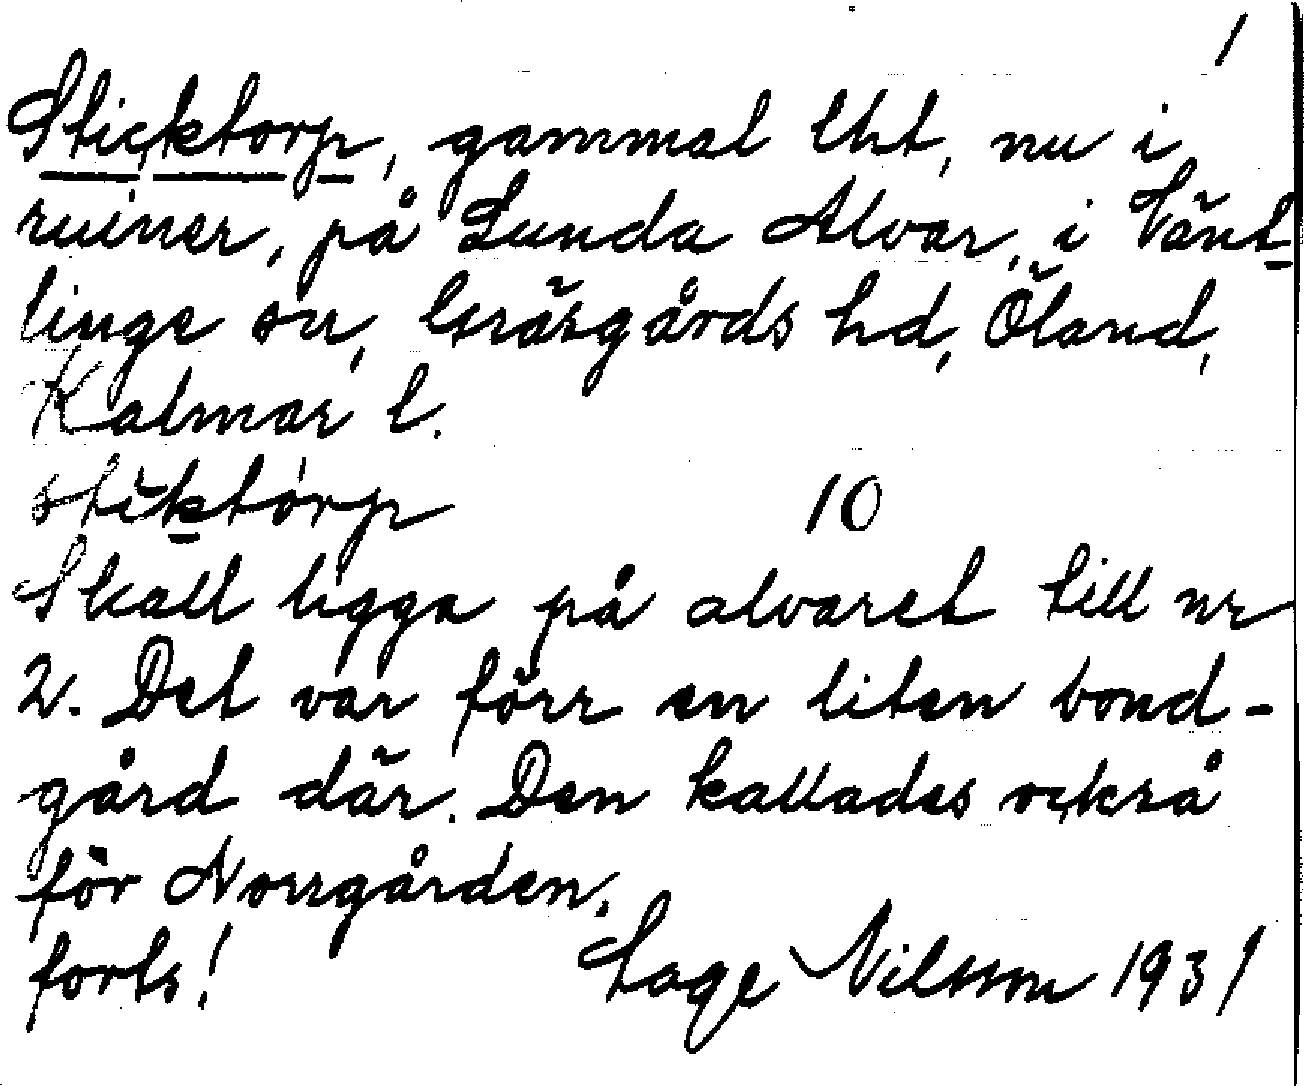 1
Sticktorp, gammal tht, nu i
ruiner, på Lunda Alvar, i Vänt
linge sn, Gräsgårds hd, Öland,
Kalmar l.
stiktòrp 10
Skall ligga på alvaret till nr
2. Det var förr en liten bond-
gård där. Den kallades också
för Norrgården.
forts! Sage Nilsson 1931